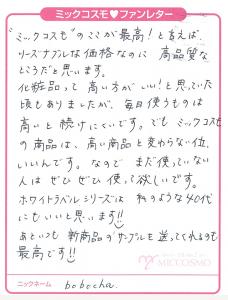 ミックコスモ♥ファンレター
"ミックコスモ"のここが最高!と言えば、
リーズナブルな価格なのに高品質な
ところだと思います。
化粧品って高い方がいい!と思っていた
頃もありましたが、毎日使うものは
高いと続けにくいです。でもミックコスモ
の商品は、高い商品と変わらない位、
いいんです。なのでまだ使っていない
人はぜひぜひ使って欲しいです。
ホワイトラベルシリーズは私のような40代
にもいいと思います!!
あといつも新商品のサンプルを送ってくれるのも
最高です!!
MICCOSMO
ニックネーム bobocha